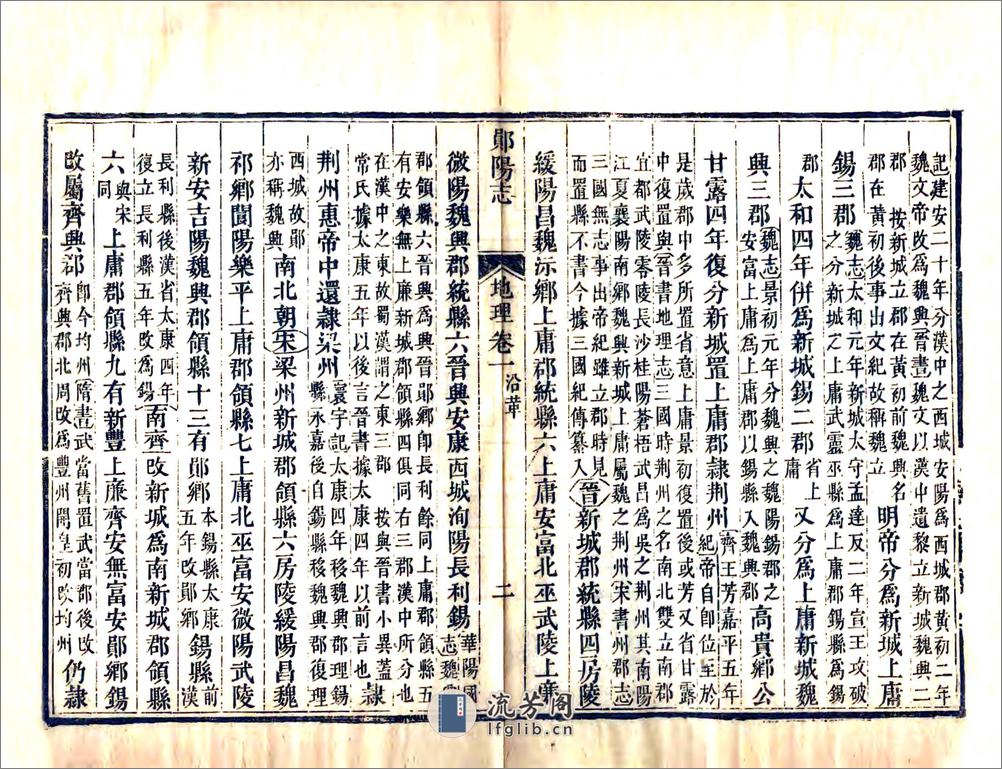 記建安二十年分漢中之西城安陽爲西城郡黃初二年
魏文帝改爲魏興晉書魏文以漢中遺黎立新城魏興二
郡 按新城立郡在黃初前魏興名
郡在黃初後事出文紀故稱魏立 明帝分爲新城上庸
錫三郡 魏志太和元年新城太守孟達反二年宣王攻破
之分新城之上庸武靈巫縣爲上庸郡錫縣爲錫
郡 太和四年併爲新城錫二郡 省上庸 又分爲上庸新城魏
興三郡 魏志景初元年分魏興之魏陽錫郡之
安富上庸爲上庸郡以錫縣入魏興郡 高貴鄉公
甘露四年復分新城置上庸郡隷荆州 齊王芳嘉平五年
紀帝自即位至於
是歲郡中多所置省意上庸景初復置後或芳又省甘露
中復置與 晉書地理志三國時荆州之名南北雙立南郡
宜都武陵零陵長沙桂陽蒼梧武昌爲吳之荆州其南陽
江夏襄陽南鄉魏興新城上庸屬魏之荆州宋書州郡志
三國無志事出帝紀雖立郡時見
而置縣不書今據三國紀傳纂入 晉 新城郡統縣四房陵
綏陽昌魏沶鄉上庸郡統縣六上庸安富北巫武陵上廉
鄖陽志 地理卷一 沿革 二
微陽魏興郡統縣六晉興安康西城洵陽長利錫 華陽國
志魏興
郡領縣六晉興爲興晉鄖鄉即長利餘同上庸郡領縣五
有安樂無上廉新城郡領縣四俱同右三郡漢中所分也
在漢中之東故蜀漢謂之東三郡 按與晉書小異蓋
常氏據太康五年以後言晉書據太康四年以前言也 隷
荆州惠帝中還隷梁州 寰宇記太康四年移魏興郡理錫
縣永嘉後自錫縣移魏興郡復理
西城故鄖
亦稱魏興 南北朝 宋 梁州新城郡領縣六房陵綏陽昌魏
祁鄉閬陽樂平上庸郡領縣七上庸北巫富安微陽武陵
新安吉陽魏興郡領縣十三有鄖鄉 本錫縣太康
五年改鄖鄉 錫縣 前
漢
長利縣後漢省太康四年
復立長利縣五年改爲錫 南齊 改新城爲南新城郡領縣
六 與宋同 上庸郡領縣九有新豐上庸齊安無富安鄖鄉錫
改屬齊興郡 即今均州隋書武當舊置武當郡後改
齊興郡北周改爲豐州開皇初改均州 仍隷
流芳閣
lfglib.cn